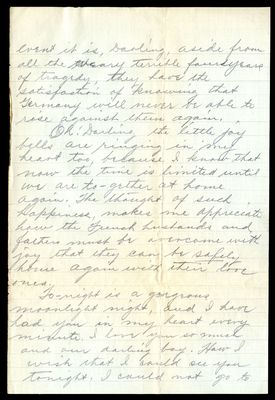 event it is, Darling, aside from
all the weary terrible four years
of tragedy, they have the
satisfaction of knowing that
Germany will never be able to
rose against them again.
Oh! Darling, its little joy
bells are ringing in my
heart too, because I know that
now the time is limited until
we are to-gether at home
again. The thought of such
Happiness, makes me appreciate
how the French husbands and
fathers must be overcome with
joy that they can be safely
house again with their love
ones.
To-night is a gorgeous
moonlight night, and I have
had you in my heart every
minute. I love you so much
and our darling boy. How I
wish that I could see you
tonight. I could not go to